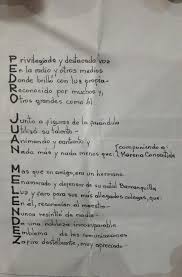 Privilegiada y destacada voz
En la radio y otros medios
Donde brilló con luz propia
Reconocido por muchos y
Otros grandes como él
Junto a figuras de la farándula
Utilizó su talento
Animando y cantante y
Nada más y nada menos que
Más que un amigo, era un hermano
Enamorado y defensor de su natal Barranquilla
Luz y faro para sus más allegados colegas, que
En el, reconocían al maestro
Nunca vestido de
De una nobleza incomparable
Emblema de las comunicaciones
Zafiro destellante, muy apreciado